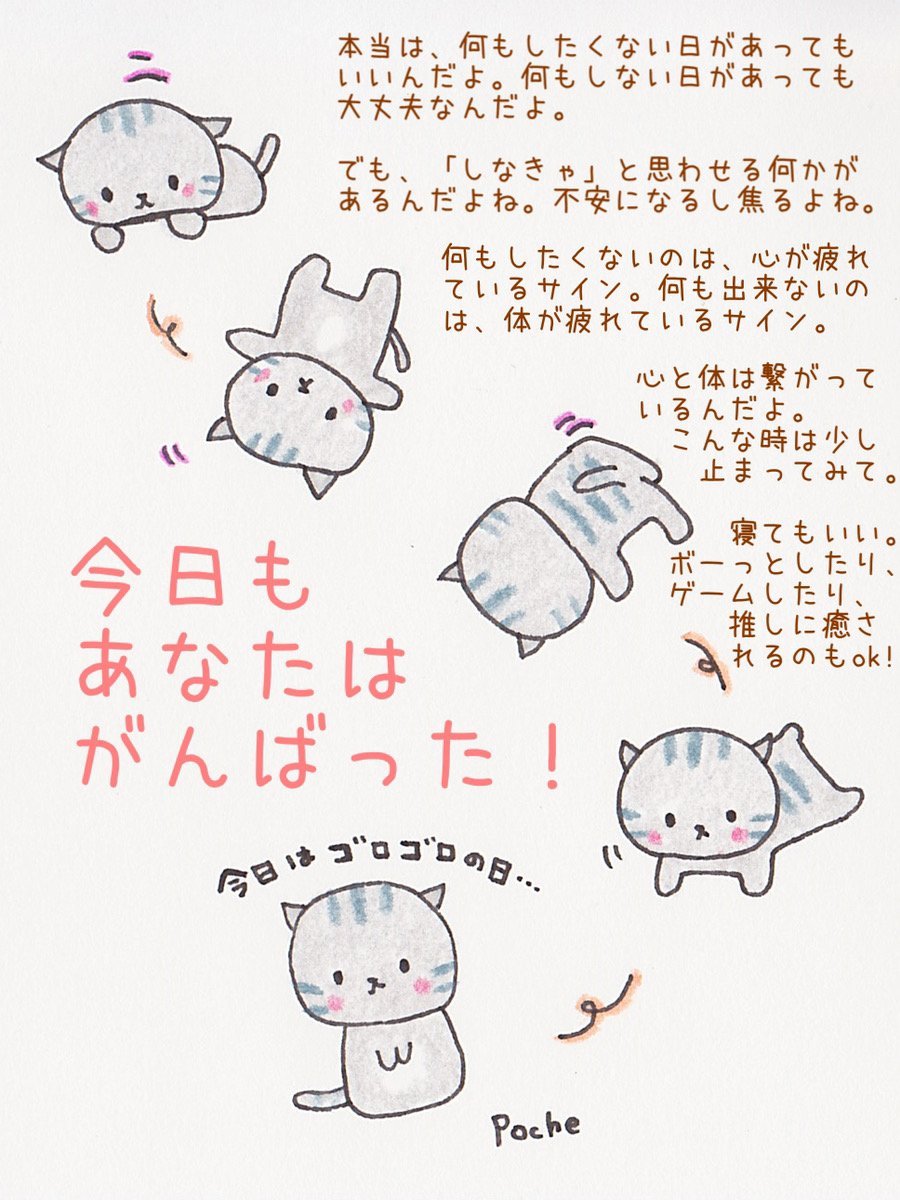 本当は、何もしたくない日があっても
いいんだよ。何もしない日があっても
大丈夫なんだよ。
でも、「しなきゃ」と思わせる何かが
あるんだよね。不安になるし焦るよね。
何もしたくないのは、心が疲れ
ているサイン。何も出来ないの
は、体が疲れているサイン。
心と体は繋がって
いるんだよ。
こんな時は少し
止まってみて。
寝てもいい。
ボーっとしたり、
ゲームしたり、
推しに癒さ
れるのもok!
今日も
あなたは
がんばった！
今日はゴロゴロの日…
Poche